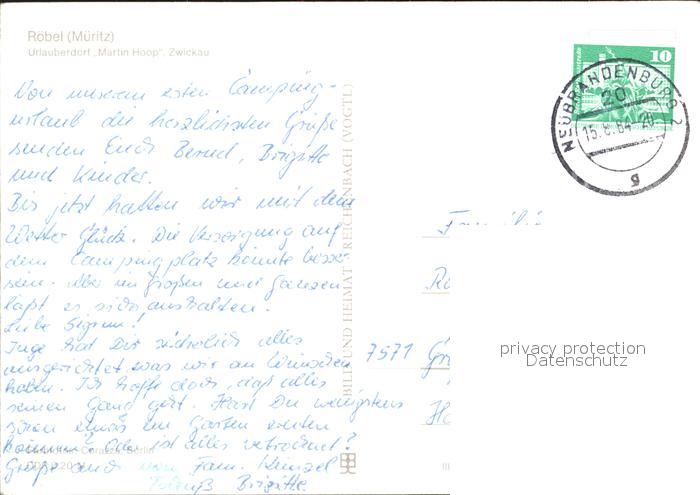 Röbel (Müritz)
Urlauberdorf „Martin Hoop", Zwickau
10
NEUBRANDENBURG 2
20
15.8.84-20
g
Von unserem ersten Camping-
urlaub die herzlichsten Grüße
senden Euch Bernd, Brigitte
und Kinder.
Bis jetzt hatten wir mit dem
Wetter Glück. Die Versorgung auf
dem Campingplatz könnte besser
sein. Aber im großen und ganzen
läßt es sich aushalten.
Liebe Sigrun!
Inge hat Dir sicherlich alles
ausgerichtet was wir an Wünschen
haben. Ich hoffe doch, daß alles
seinen Gang geht. Hast Du wenigstens
schon etwas im Garten ernten
können? Oder ist alles vertrocknet?
Grüße auch von Fam.
Brigitte
BILD UND HEIMAT REICHENBACH (VOGTL)
Berlin
Familie
7571
privacy protection
Datenschutz